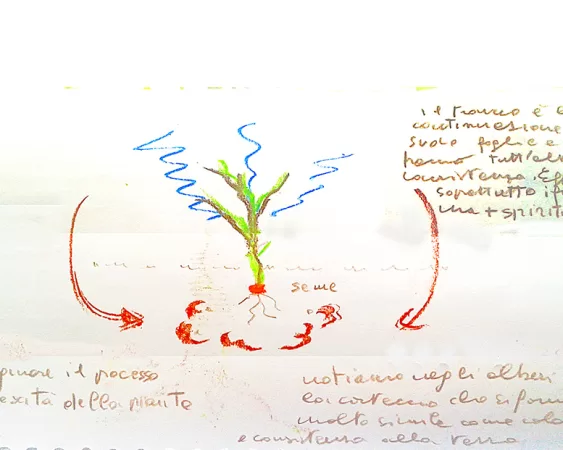 il tronco è
continuazione
suolo foglie e
hanno tutt'al
consistenza. Eff
soprattutto i f
una + spirit
seme
il processo
escità della piante
notiamo negli alberi
la corteccia che si form
molto simile come colo
e consistenza alla terra